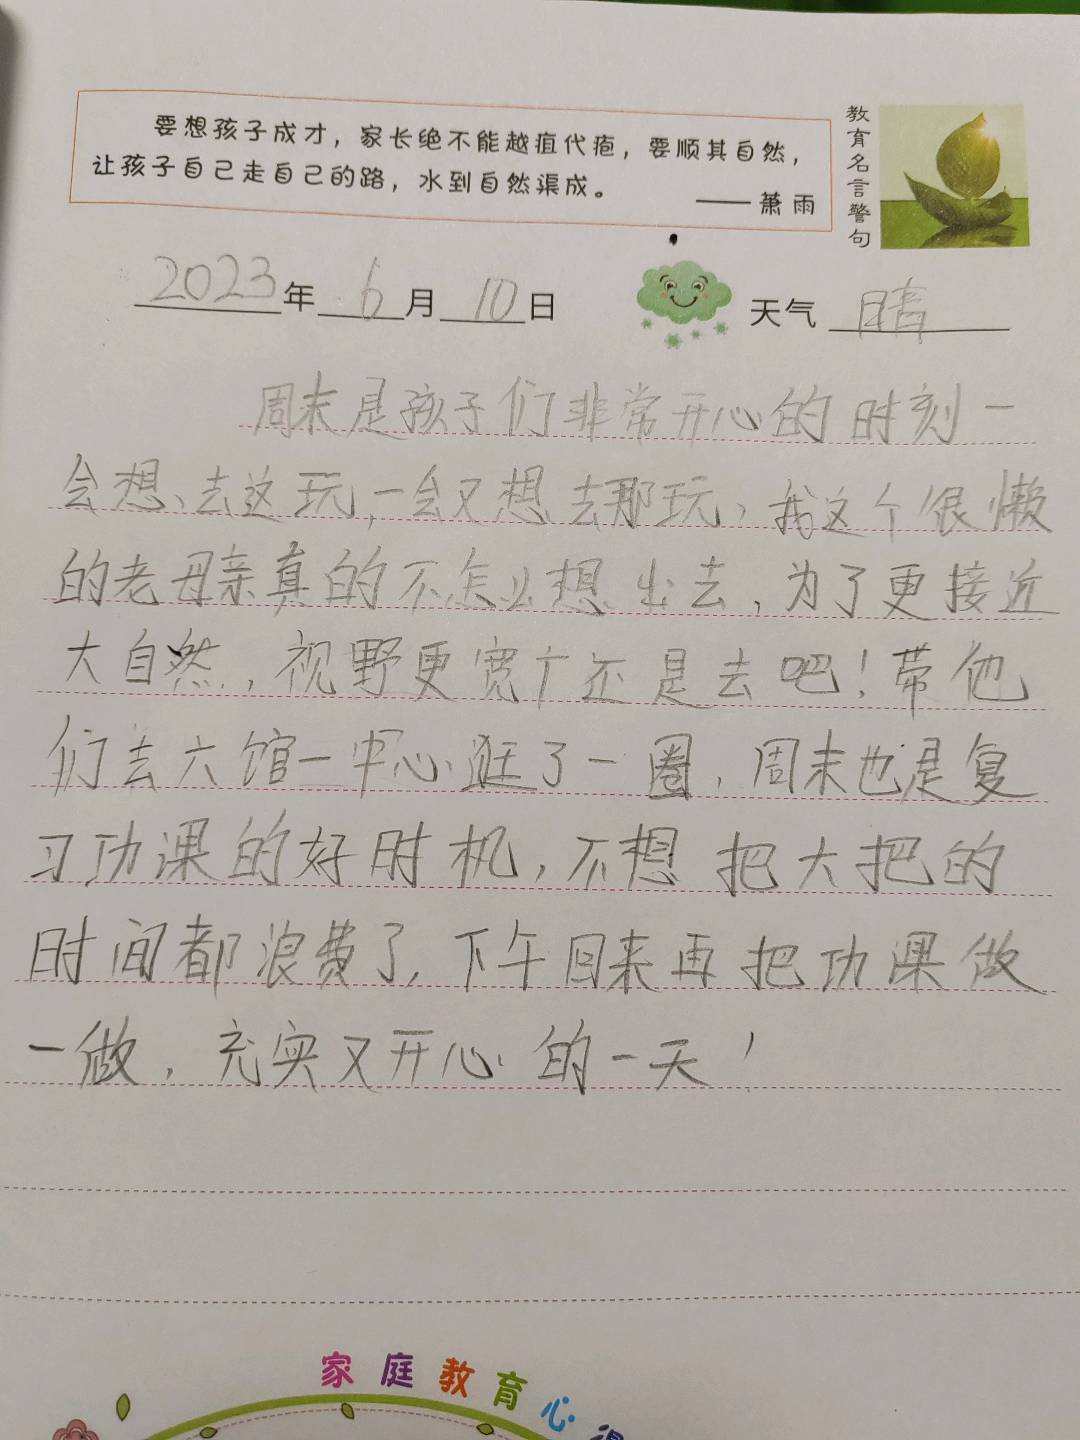 要想孩子成才，家长绝不能越疽代疱，要顺其自然，
让孩子自己走自己的路，水到自然渠成。
——萧雨
教育名言警句
2023年6月10日 天气 晴
周末是孩子们非常开心的时刻一
会想、去这玩，一会又想去那玩，我这个很懒
的老母亲真的不怎么想出去，为了更接近
大自然，视野更宽广还是去吧！带他
们去六馆一中心逛了一圈，周末也是复
习功课的好时机，不想把大把的
时间都浪费了，下午回来再把功课做
一做，充实又开心的一天！
家庭教育心